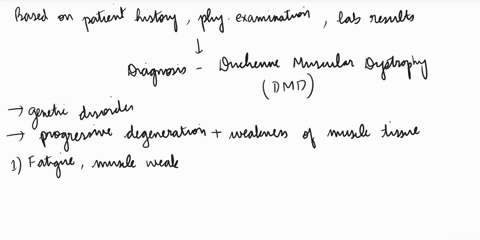 Based on patient history, phy. examination, lab results
↓
Diagnosis - Duchenne Muscular Dystrophy
(DMD)
→ genetic disorder
→ progressive degeneration + weakness of muscle tissue
1) Fatigue, muscle weak